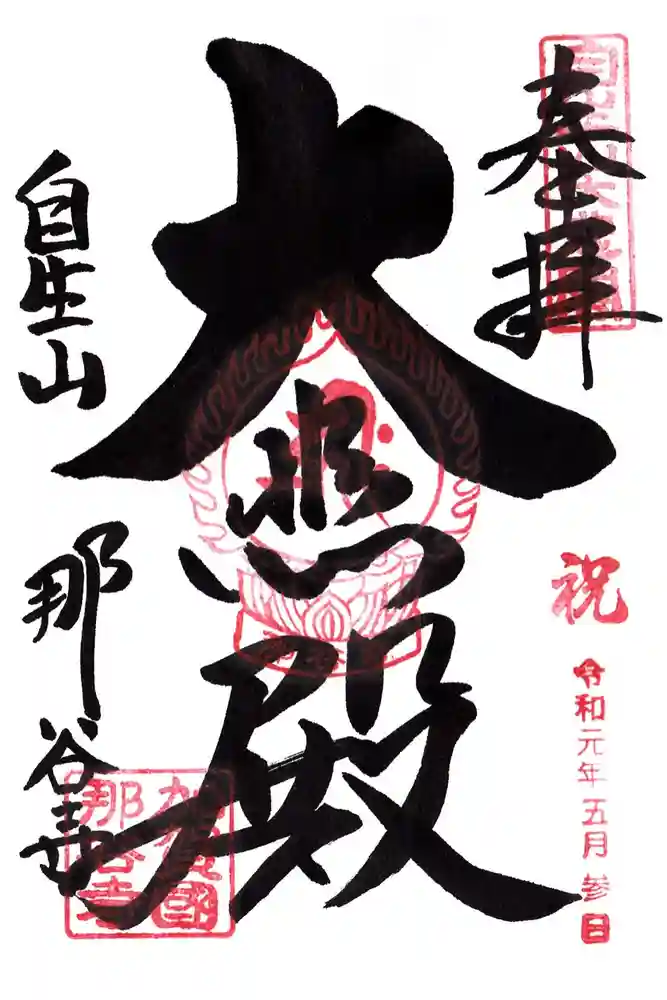 奉拝
祝
令和元年五月参日
大悲殿
自生山
那谷寺
加賀國
那谷寺